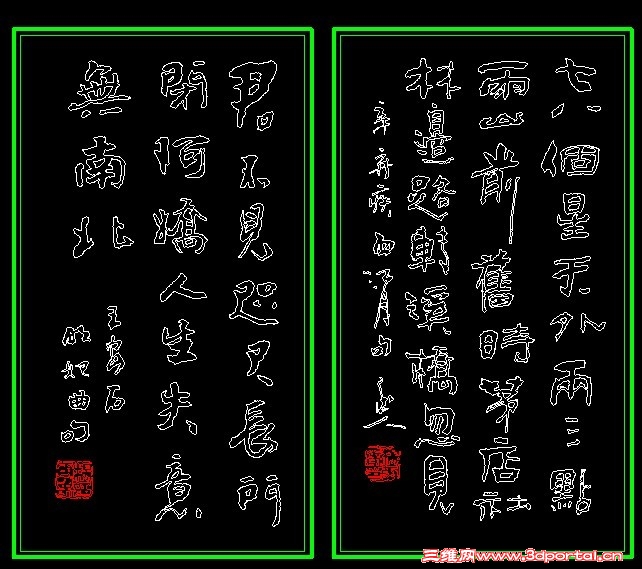 七八個星天外兩三點
雨山前舊時茅店社
林邊路轉溪橋忽見
辛弃疾西江月句
君不見咫尺長門
閉阿嬌人生失意
無南北
王安石
明妃曲句
三维网www.3dportal.cn